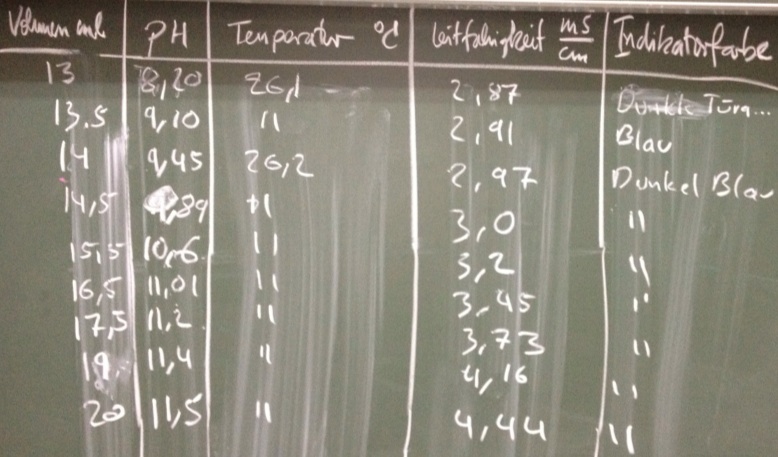 Volumen ml PH Temperatur °C Leitfähigkeit mS/cm Indikatorfarbe
13 8,20 26,1 2,87 Dunkle Türq...
13,5 9,10 " 2,91 Blau
14 9,45 26,2 2,97 Dunkel Blau
14,5 9,89 " 3,0 "
15,5 10,6 " 3,2 "
16,5 11,01 " 3,45 "
17,5 11,2 " 3,73 "
19 11,4 " 4,16 "
20 11,5 " 4,44 "